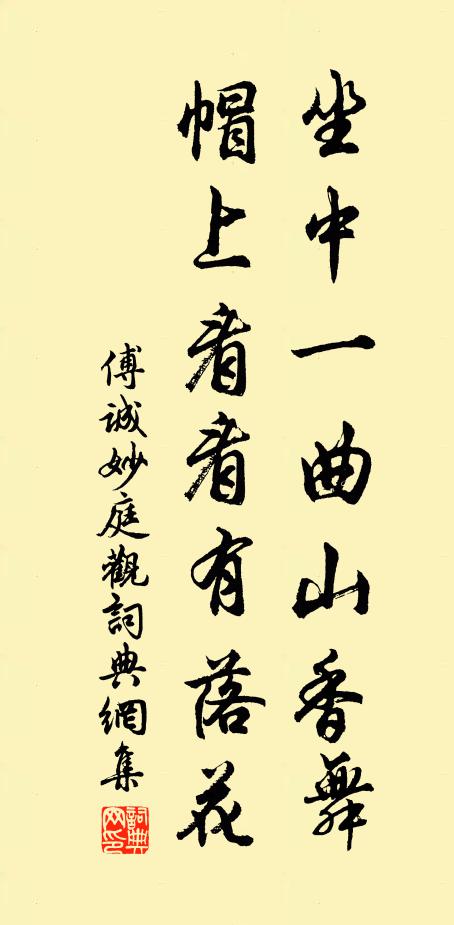 坐中一曲山香舞
帽上看看有落花
傅诚妙庭觀詞典網集
詞典
网印